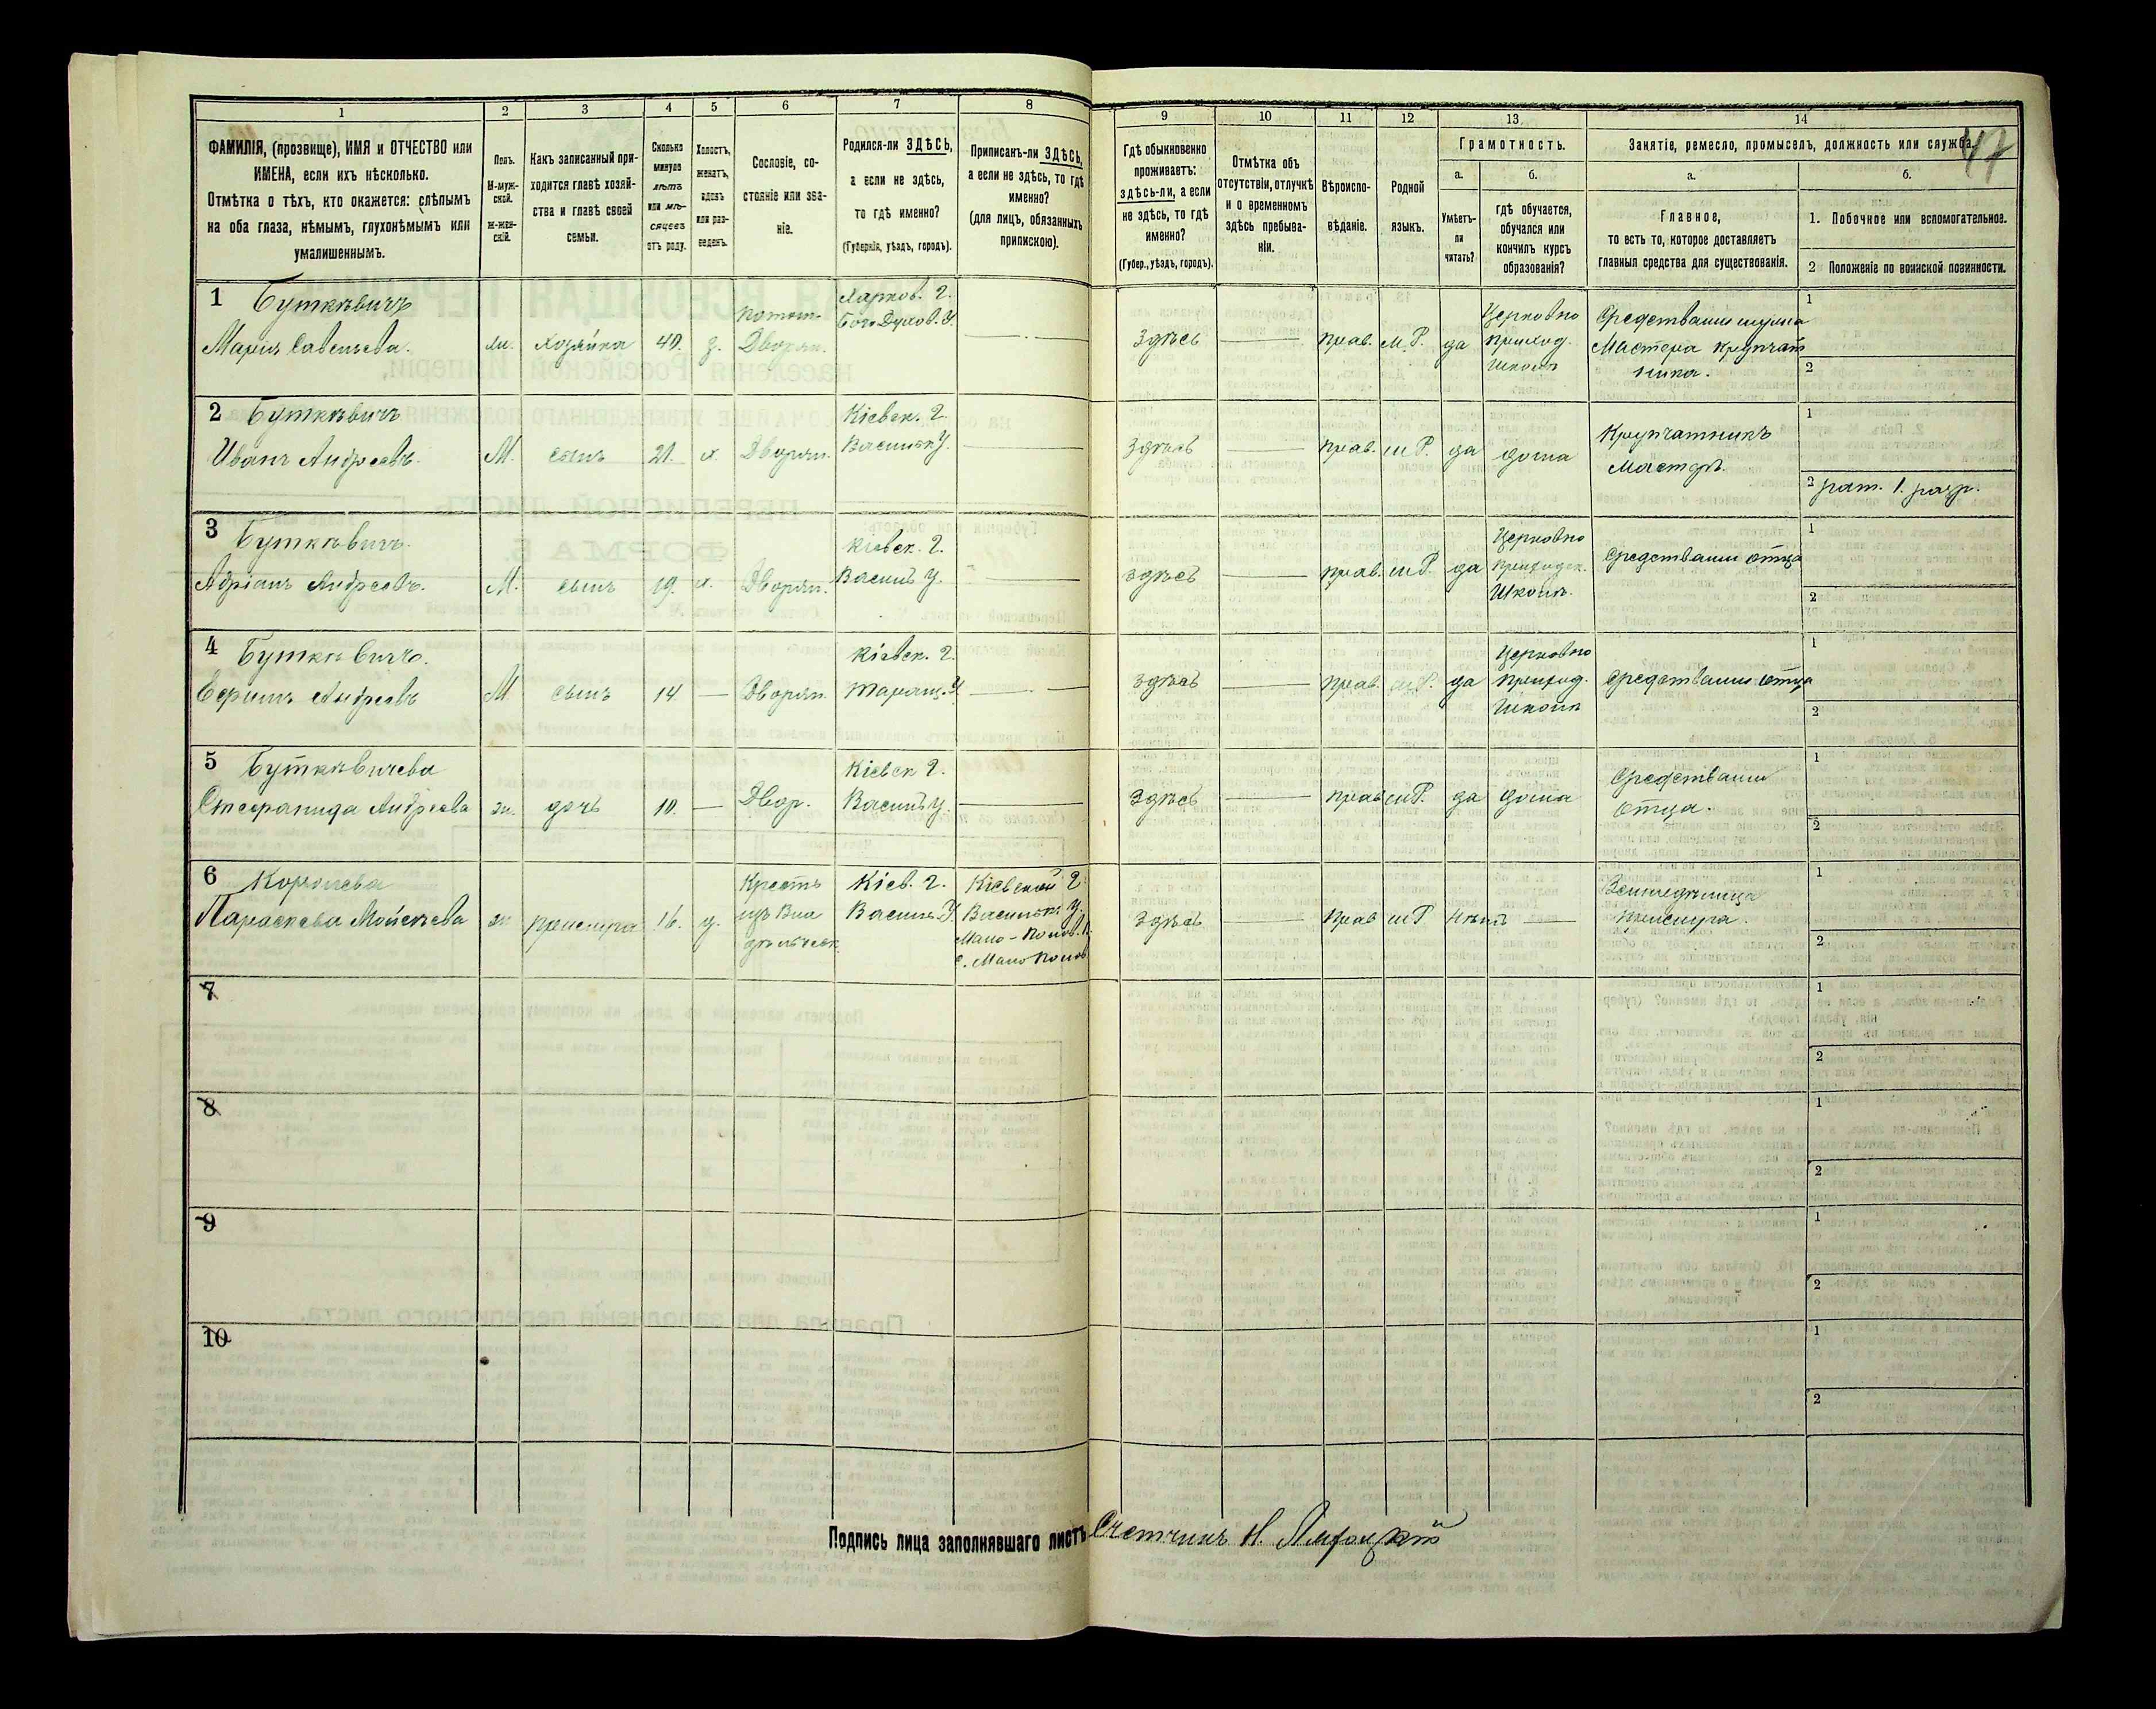 1 2 3 4 5 6 7 8 9 10 11 12 13 14
47
ФАМИЛІЯ, (прозвище), ИМЯ и ОТЧЕСТВО или
ИМЕНА, если ихъ нѣсколько.
Отмѣтка о тѣхъ, кто окажется: слѣпымъ
на оба глаза, нѣмымъ, глухонѣмымъ или
умалишеннымъ.
Полъ.
М-муж-
ской.
Ж-жен-
скій.
Какъ записанный при-
ходится главѣ хозяй-
ства и главѣ своей
семьи.
Сколько
минуло
лѣтъ
или мѣ-
сяцевъ
отъ роду.
Холостъ,
женатъ,
вдовъ
или раз-
веденъ.
Сословіе, со-
стояніе или зва-
ніе.
Родился-ли ЗДѢСЬ,
а если не здѣсь,
то гдѣ именно?
(Губернія, уѣздъ, городъ).
Приписанъ-ли ЗДѢСЬ,
а если не здѣсь, то гдѣ
именно?
(для лицъ, обязанныхъ
припискою).
Гдѣ обыкновенно
проживаетъ:
здѣсь-ли, а если
не здѣсь, то гдѣ
именно?
(Губер., уѣздъ, городъ).
Отмѣтка объ
отсутствіи, отлучкѣ
и о временномъ
здѣсь пребыва-
ніи.
Вѣроиспо-
вѣданіе.
Родной
языкъ.
Грамотность.
а.
Умѣетъ-
ли
читать?
б.
гдѣ обучается,
обучался или
кончилъ курсъ
образованія?
Занятіе, ремесло, промыселъ, должность или служба.
а.
Главное,
то есть то, которое доставляетъ
главныя средства для существованія.
б.
1. Побочное или вспомогательное.
2 Положеніе по воинской повинности.
1 Буткѣвичъ
Марія Савельева.
ж.
хозяйка
40.
з.
потом.
Дворян.
Харков. г.
Богодухов. У.
Здѣсь
прав.
м.Р.
да
Церковно
приход.
школѣ
Средствами мужа
Мастера крупчат
ника.
1
2
2 Буткѣвичъ
Иванъ Андреевъ.
М.
сынъ
21.
х.
Дворян.
Кіевск. г.
Васильк У.
Здѣсь
прав.
м Р.
да
дома
Крупчатникъ
Мастеръ.
1
2 рат. 1. разр.
3 Буткѣвичъ.
Адріанъ Андреевъ.
М.
сынъ
19.
х.
Дворян.
Кіевск. г.
Василь У.
Здѣсь
прав.
м Р.
да
Церковно
приходск.
Школѣ.
Средствами отца
1
2
4 Буткѣвичъ.
Ефимъ Андреевъ
М
сынъ
14
Дворян.
Кіевск. г.
Таращ. У.
Здѣсь
прав.
м Р.
да
Церковно
приход.
Школѣ
Средствами отца
1
2
5 Буткѣвичева
Стефанида Андреева
ж.
дочь
10.
Двор.
Кіевск г.
Василь У.
Здѣсь
прав
м Р.
да
дома
Средствами
отца.
1
2
6 Королева
Параскева Мойсѣева
ж.
прислуга
16.
д.
Крестъ
изъ Вла
дѣльческ
Кіев. г.
Василь. У.
Кіевской г.
Васильк. У.
Мало-Полов. В.
с. Мало Полов.
Здѣсь
прав
м Р
Нѣтъ
прислуга.
1
2
7
1
2
8
1
2
9
1
2
10
1
2
Подпись лица заполнявшаго листъ Счетчикъ Н.